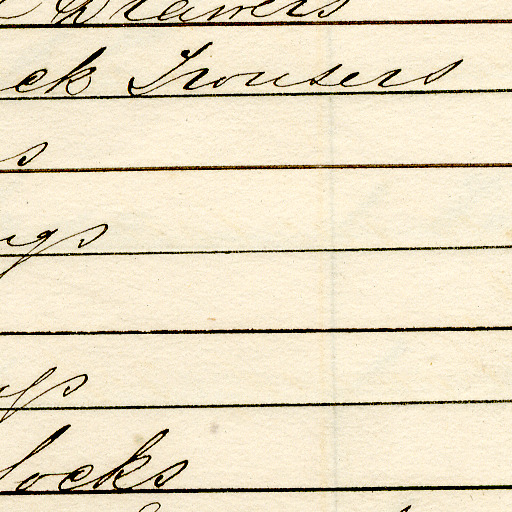 Drawers
ck Trousers
s
gs
s
locks